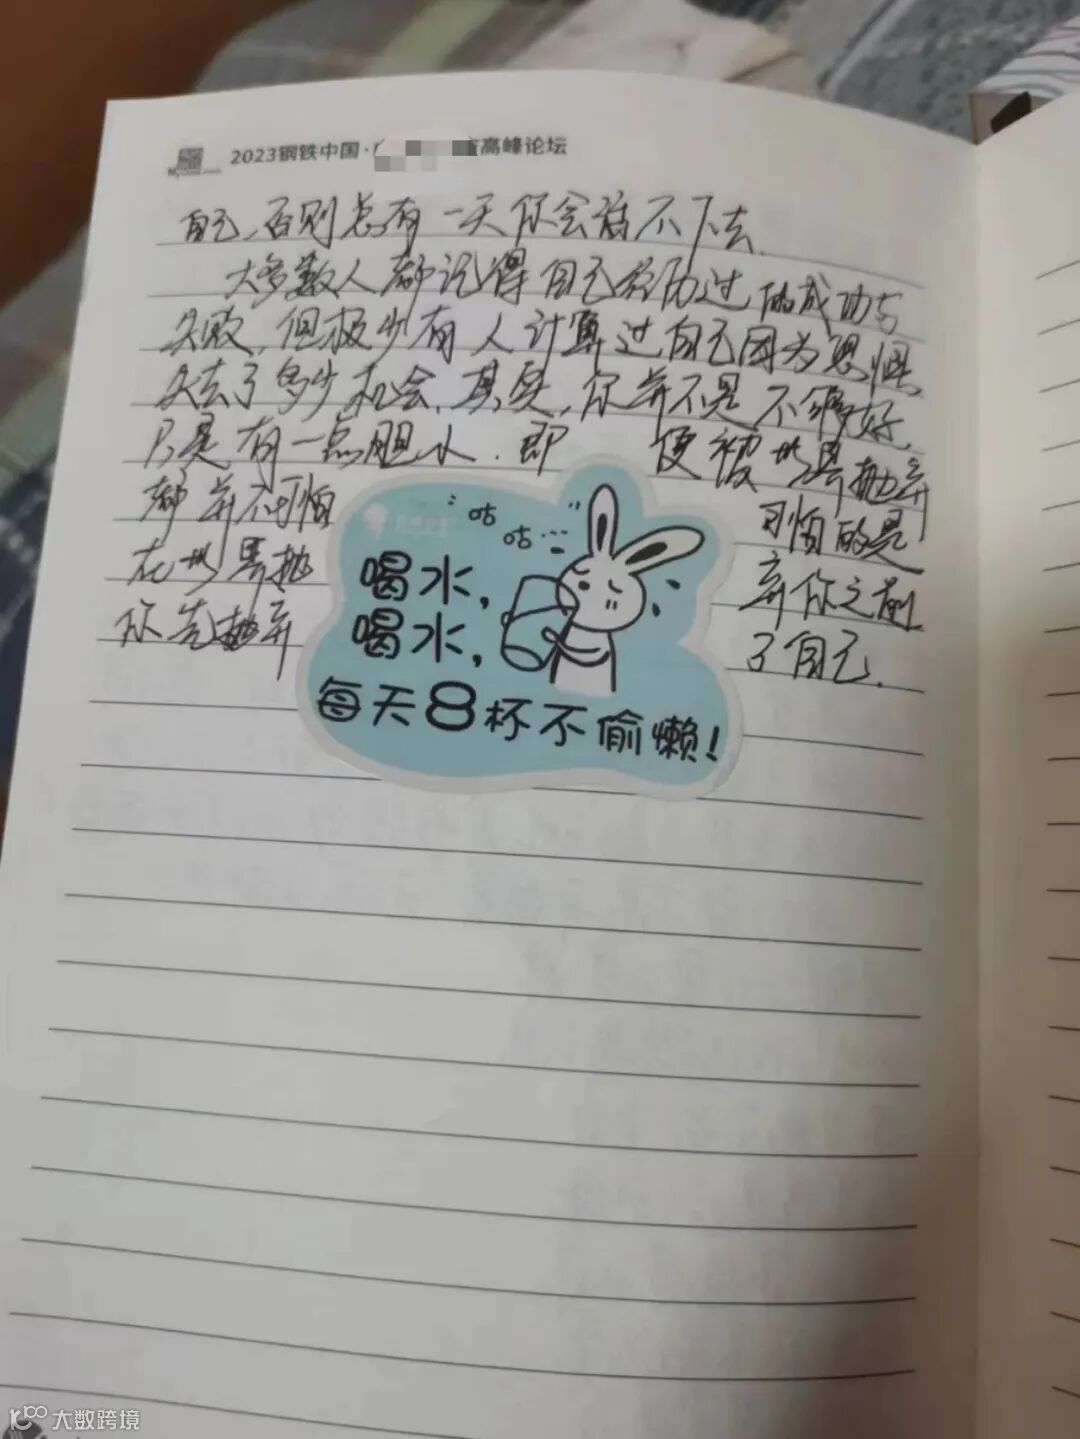 2023钢铁中国·
高峰论坛
自己,否则总有一天你会撑不下去.
大多数人都记得自己经历过的成功与
失败,但极少有人计算过自己因为恐惧
失去了多少机会.其实,你并不是不够好,
只是有一点胆小.即 便被世界抛弃
都并不可怕 可怕的是
在世界抛 弃你之前
你先抛弃 了自己.
咕
咕…
喝水,
喝水,
每天8杯不偷懒!
大数跨境